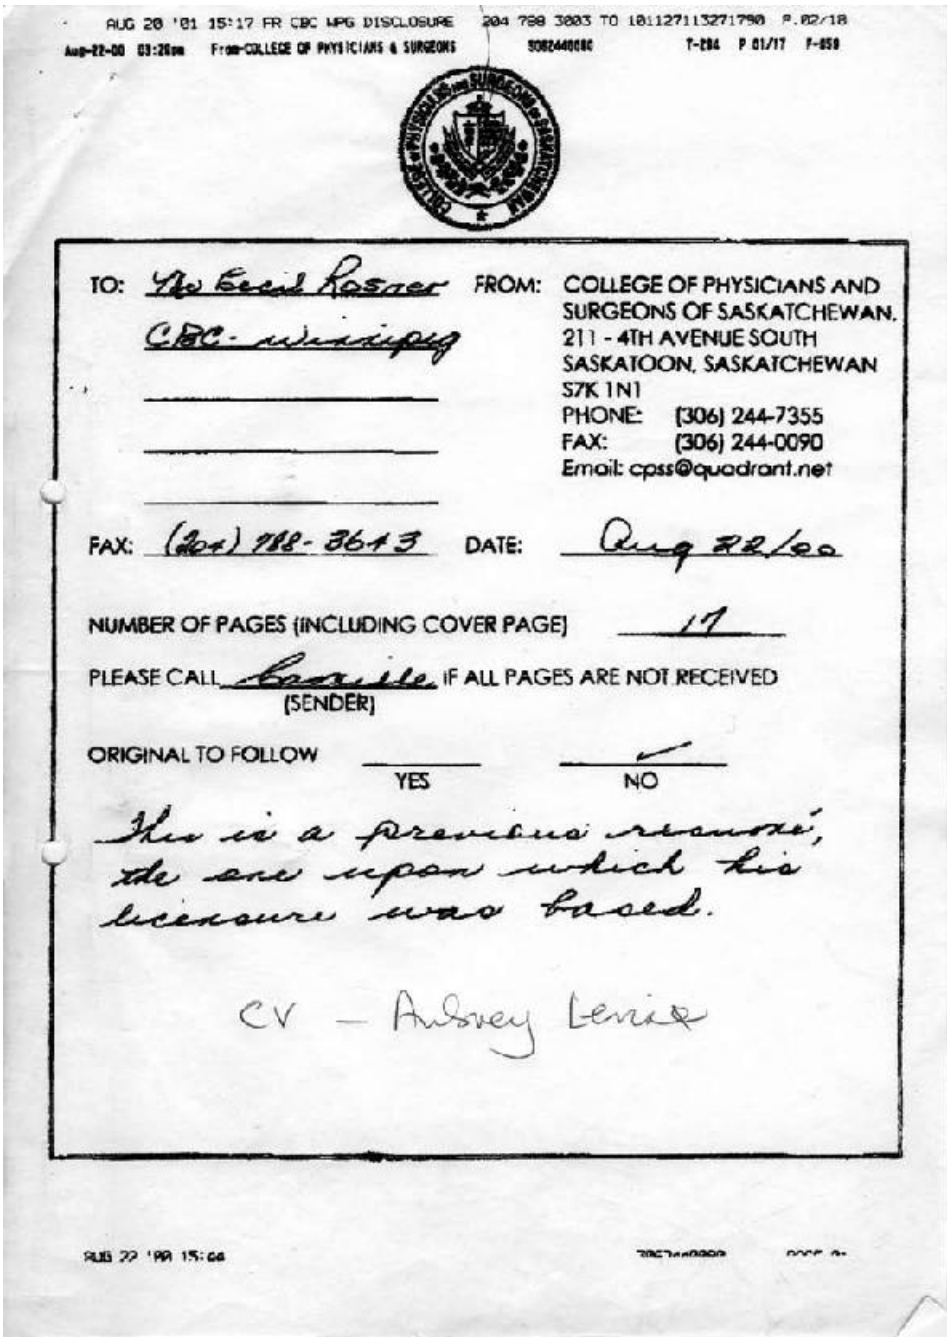 AUG 20 '01 15:17 FR CBC WPG DISCLOSURE 204 788 3003 TO 101127113271790 P.02/18
Aug-22-00 03:26pm From-COLLEGE OF PHYSICIANS & SURGEONS 3062440090 T-284 P 01/17 F-859
COLLEGE OF PHYSICIANS AND SURGEONS OF SASKATCHEWAN
TO: Mr Cecil Rosner FROM: COLLEGE OF PHYSICIANS AND
SURGEONS OF SASKATCHEWAN.
CBC - Winnipeg 211 - 4TH AVENUE SOUTH
SASKATOON, SASKATCHEWAN
S7K 1N1
PHONE: (306) 244-7355
FAX: (306) 244-0090
Email: cpss@quadrant.net
FAX: (204) 788-3643 DATE: Aug 22/00
NUMBER OF PAGES (INCLUDING COVER PAGE) 17
PLEASE CALL IF ALL PAGES ARE NOT RECEIVED
(SENDER)
ORIGINAL TO FOLLOW ✓
YES NO
This is a previous resumé,
the one upon which his
licensure was based.
CV - Aubrey Levine
AUG 22 '00 15:44